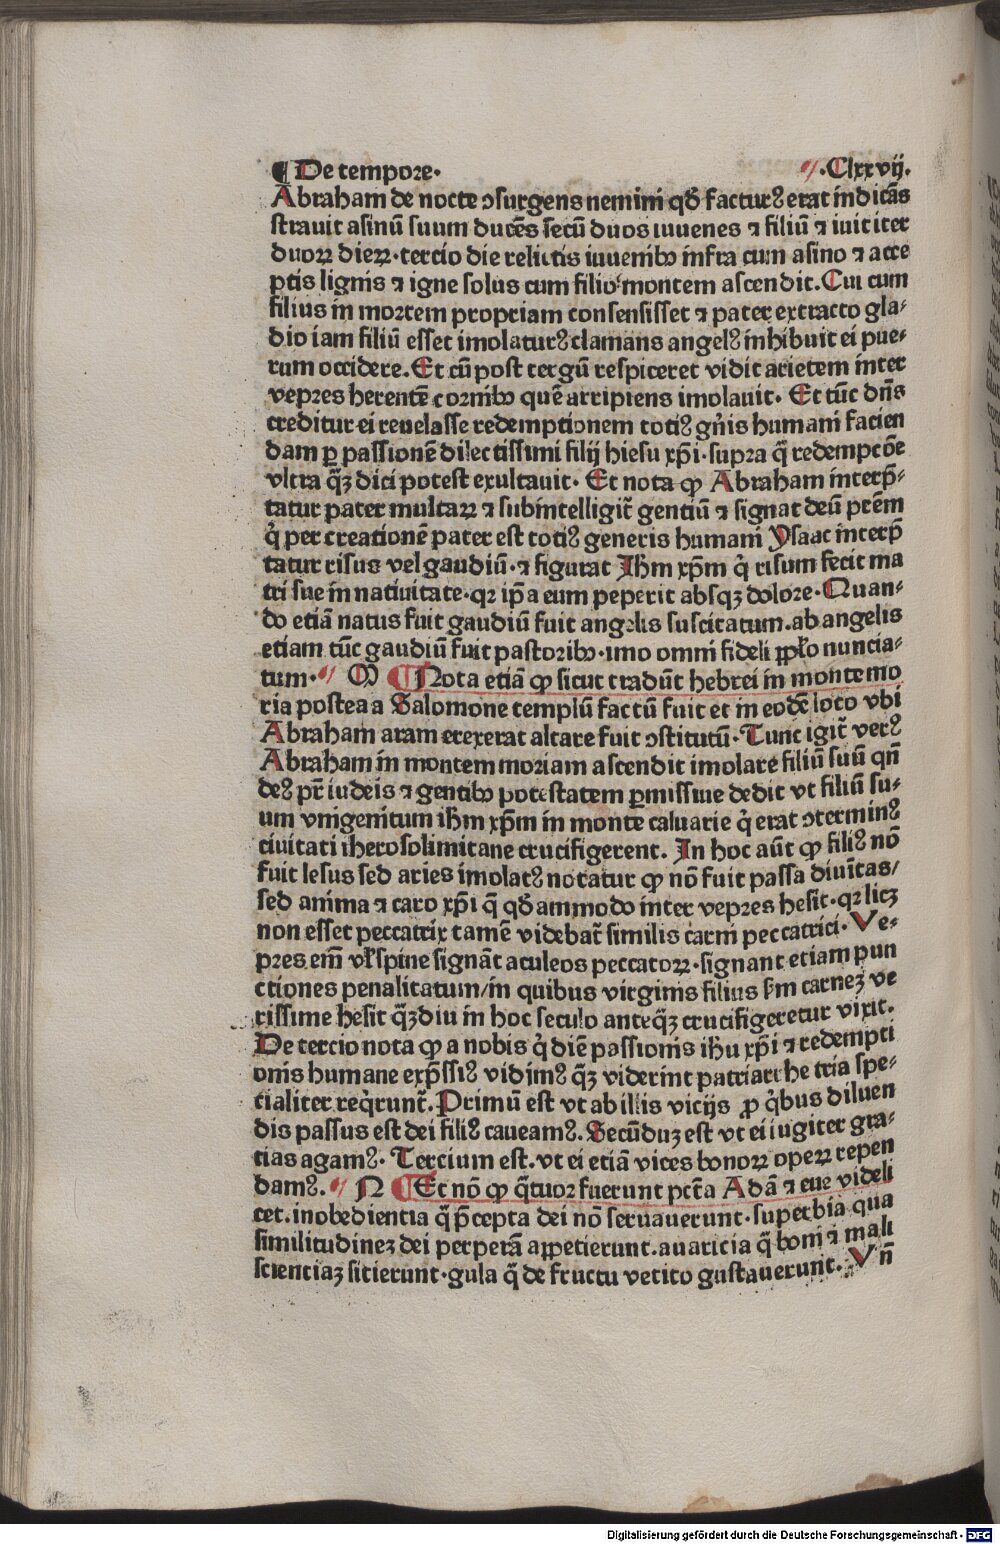 ¶ De tempore. .Clxxvij.
Abraham de nocte ↄsurgens nemini qđ factur⁹ erat indicās
strauit asinū suum ducēs secū duos iuuenes ⁊ filiū ⁊ iuit iter
duoꝝ dieꝝ·tercio die relictis iuuenibꝰ infra cum asino ⁊ acce
ptis lignis ⁊ igne solus cum filio montem ascendit.Cui cum
filius in mortem propriam consensisset ⁊ pater extracto gla⸗
dio iam filiū esset imolatur⁹ clamans angel⁹ inhibuit ei pue⸗
rum occidere.Et cū post tergū respiceret vidit arietem inter
vepres herentē cornibꝰ quē arripiens imolauit. Et tūc dn̄s
creditur ei reuelasse redemptionem toti⁹ gn̄is humani facien
dam ꝑ passionē dilectissimi filij hiesu xp̄i·supra q̄ redempcōe
vltra q̄ꝫ dici potest exultauit. Et nota ꝙ Abraham interp̄⸗
tatur pater multaꝝ ⁊ subintelligit̄ gentiū ⁊ signat deū pr̄em
q̇ per creationē pater est toti⁹ generis humani Ysaac interp̄
tatur risus vel gaudiū·⁊ figurat Ihm xp̄m q̇ risum fecit ma
tri sue in natiuitate·qꝛ ip̄a eum peperit absqꝫ dolore·Quan⸗
do etiā natus fuit gaudiū fuit angelis suscitatum.ab angelis
etiam tūc gaudiū fuit pastoribꝰ·imo omni fideli ppl̄o nuncia⸗
tum· M ¶ Nota etiā ꝙ sicut tradūt hebrei in monte mo
ria postea a Salomone templū factū fuit et in eodē loco vbi
Abraham aram erexerat altare fuit ↄstitutū·Tunc igit̄ ver⁹
Abraham in montem moriam ascendit imolare filiū suū qn̄
de⁹ pr̄ iudeis ⁊ gentibꝰ potestatem ꝑmissiue dedit vt filiū su⸗
um vnigenitum ihm xp̄m in monte caluarie q̇ erat ↄtermin⁹
ciuitati iherosolimitane crucifigerent. In hoc aūt ꝙ fili⁹ nō
fuit lesus sed aries imolat⁹ notatur ꝙ nō fuit passa diuītas/
sed anima ⁊ caro xp̄i q̄ qđammodo inter vepres hesit·qꝛ licꝫ
non esset peccatrix tamē videbat̄ similis carni peccatrici·Ve⸗
pres em̄ vl̄ spine signāt aculeos peccatoꝝ·signant etiam pun
ctiones penalitatum/in quibus virginis filius sm̄ carneꝫ ve
rissime hesit q̄ꝫdiu in hoc seculo anteq̄ꝫ crucifigeretur vixit.
De tercio nota ꝙ a nobis q̇ diē passionis ih̄u xp̄i ⁊ redempti
onis humane exp̄ssi⁹ vidim⁹ q̄ꝫ viderint patriarche tria spe⸗
cialiter req̇runt̄.Primū est vt ab illis vicijs ꝓ q̇bus diluen
dis passus est dei fili⁹ caueam⁹.Secūduꝫ est vt ei iugiter gra⸗
tias agam⁹. Tercium est.vt ei etiā vices bonoꝝ opeꝝ repen
dam⁹. N ¶ Et nō ꝙ q̄tuor fuerunt pctā Adā ⁊ eue videli
cet.inobedientia q̄ p̄cepta dei nō seruauerunt·superbia qua
similitudineꝫ dei perperā appetierunt.auaricia q̄ boni ⁊ mali
scienciaꝫ sitierunt·gula q̄ de fructu vetito gustauerunt. Vn̄
Digitalisierung gefördert durch die Deutsche Forschungsgemeinschaft - DFG